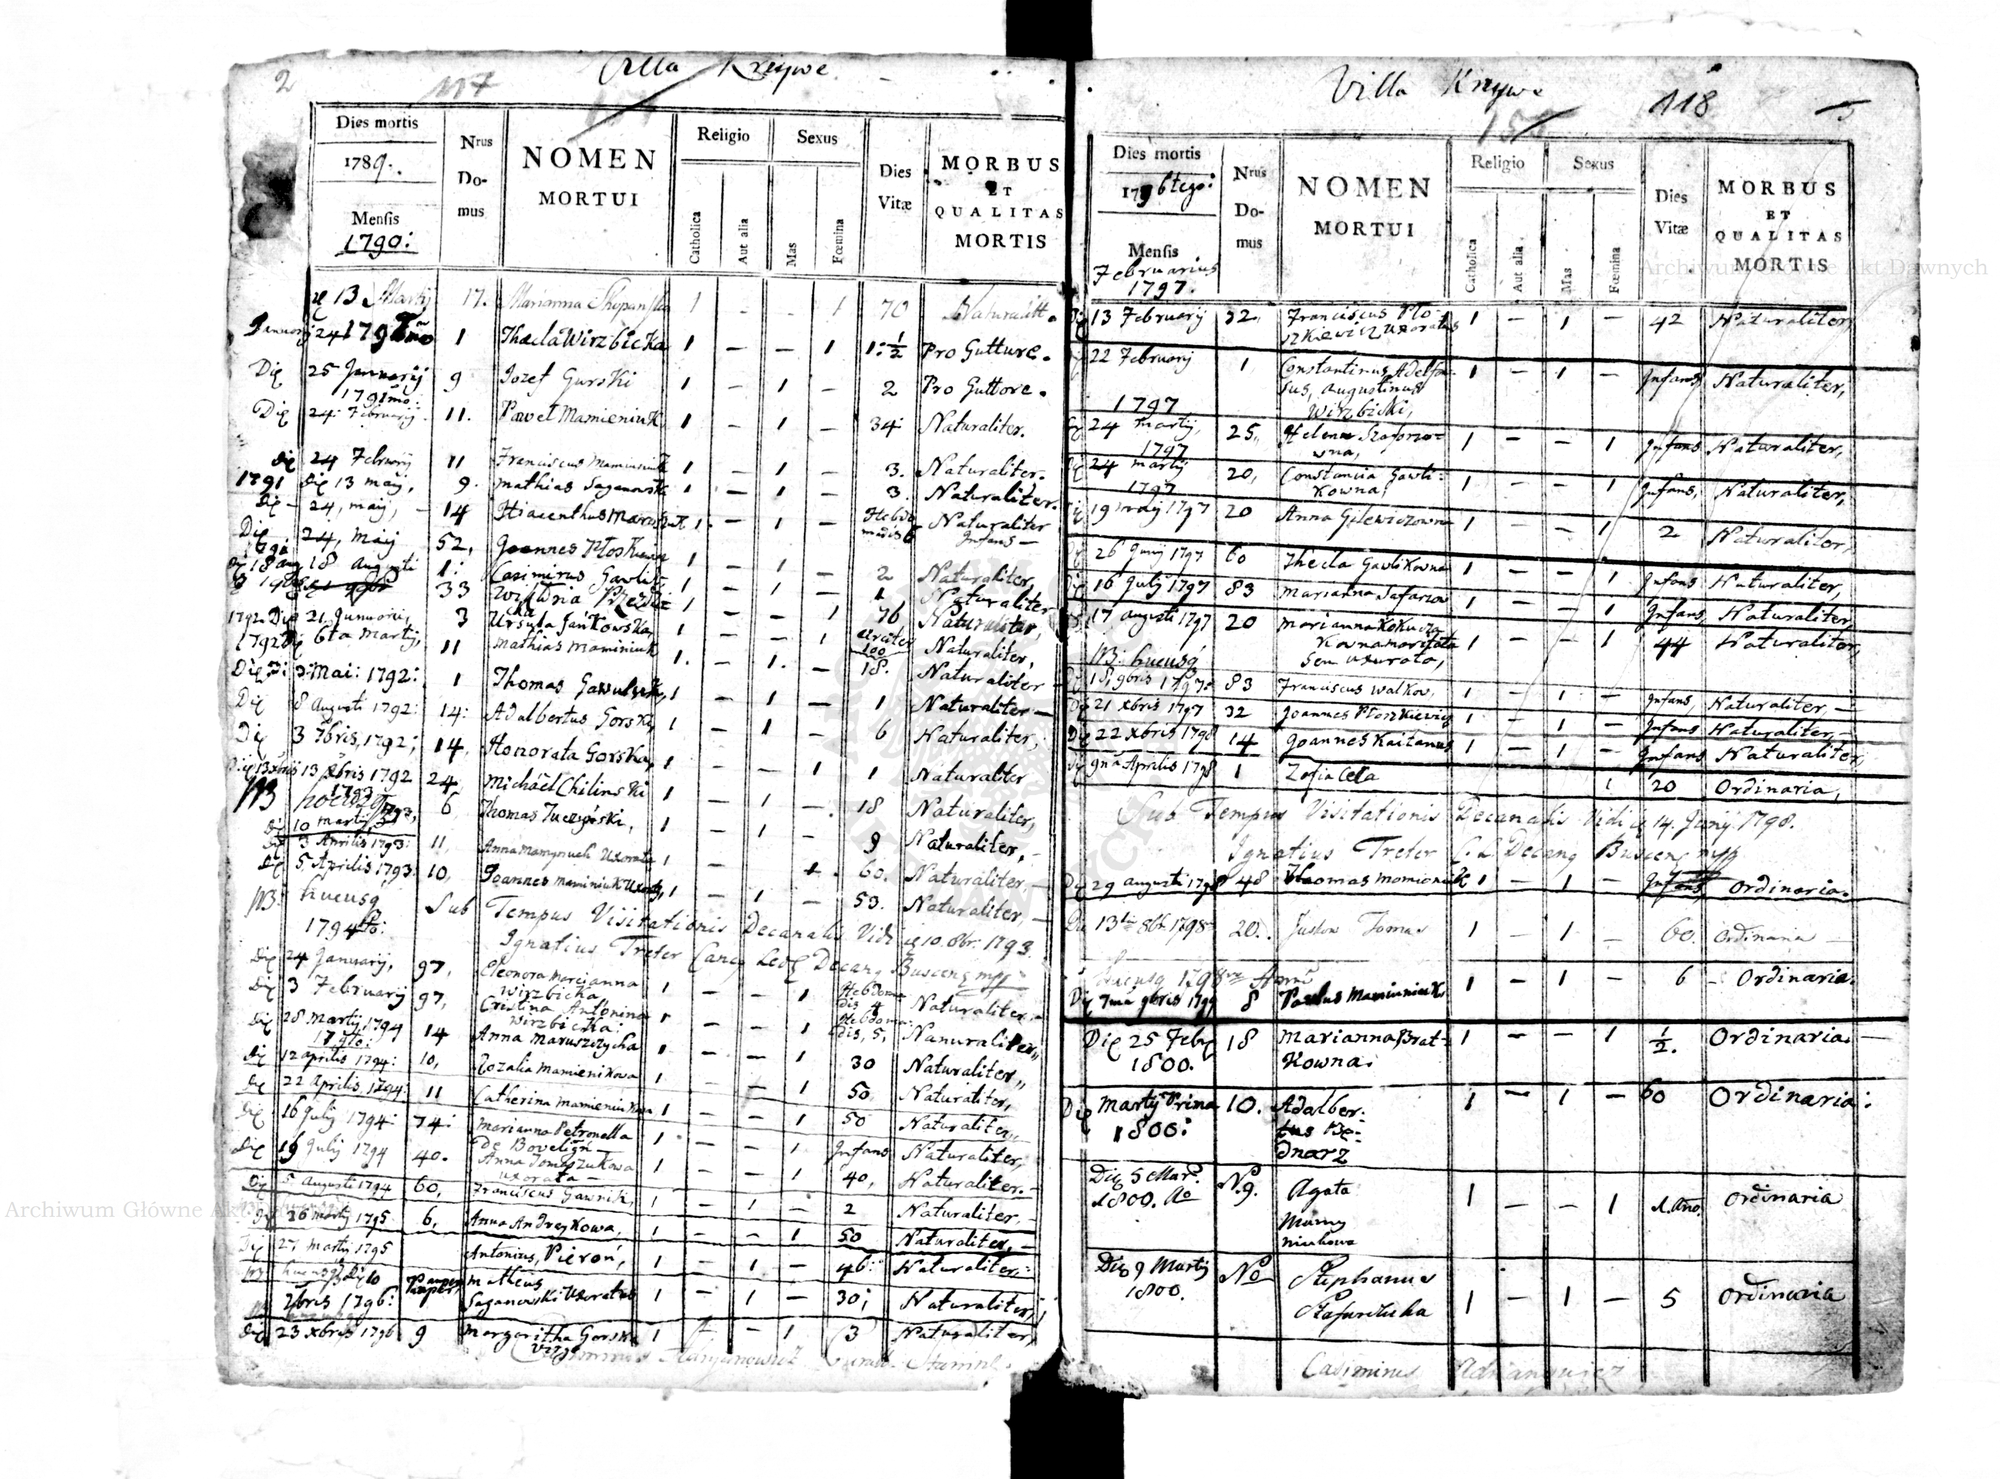 2
117
Villa Krzywe
Dies mortis
1789.
Mensis
1790:
Nrus
Do-
mus
NOMEN
MORTUI
Religio
Catholica
Aut alia
Sexus
Mas
Fœmina
Dies
Vitæ
MORBUS
ET
QUALITAS
MORTIS
13 Martij 17. Marianna 1 - - 1 70 Naturalit.
Januarij 24 1 Thecla Wirzbicka 1 - - 1 1:½ Pro Gutture.
Die 25 Januarij 9 Jozef Gurski 1 - 1 - 2 Pro Guttore.
1791mo:
Die 24: February. 11. Paweł Mamieniuk 1 - 1 - 34 Naturaliter.
Die 24 February 11 Franciscus Mamieniuk 1 - 1 - 3. Naturaliter.
1791 Die 13 maij, 9. Mathias Saganowski 1 - 1 - 3. Naturaliter.
Die - 24, maij, - 14 Hiacenthus 1. - 1 - Naturaliter
Infans -
Die 24, Maij 52, Joannes Płoskiewicz 1 - 1 - 2 Naturaliter,
1791
18 Augusti 1: Casimirus 1 - 1 - Naturaliter
33 Wiktoria 1 - - 1 76 Naturaliter,
1792. Die 21. Januarii, 3 Ursula Jańkowska, 1 - - 1 circiter 100 Naturaliter,
1792 Die 6ta Martij, 11 Mathias Maminiuk 1. - 1. - 18. Naturaliter -
Die 3: Mai: 1792: 1 Thomas 1 - 1 - 1 Naturaliter -
Die 8 Augusti 1792: 14: Adalbertus Gorski, 1 - 1 - 6 Naturaliter,
Die 3 7bris, 1792; 14, Honorata Gorska, 1 - - 1 1 Naturaliter
13 Xbris 1792 24. Michaël Chilinski 1 - 1 - 18 Naturaliter,
NB hucusq
1793
Die 10 martij, 6, Thomas 1 - 1 - 9 Naturaliter, -
Die 3 Aprilis 1793: 11, Anna Uxorata 1 - - 1. 60. Naturaliter, -
Die 5 Aprilis 1793 10, Joannes Maminiuk 1 - 1 - 53. Naturaliter, -
NB: hucusq Sub Tempus Visitationis Decanalis Vidi 10. 8br. 1793.
1794to: Ignatius Treter Decang Buscens mpp
Die 24 January, 97, Eleonora Marcianna
Wirzbicka 1 - - 1 Hebdoma
dis 4 Naturaliter -
Die 3 February 97, Cristina Antonina
Wirzbicka: 1 - - 1 Hebdoma
dis, 5, Nanuraliter,,
Die 28 Martij, 1794 14 Anna Maruszczycha 1 - - 1 30 Naturaliter,,
Die 12 aprilis 1794: 10, Rozalia Mamienikowa 1 - - 1 50 Naturaliter,
Die 22 Aprilis, 1794: 11 Catherina 1 - - 1 50 Naturaliter,
Die 16 July 1794: 74: Marianna Petronella
De 1 - - 1 Infans Naturaliter,
Die 19 July 1794 40. Anna Tomaszukowa
uxorata - 1 - - 1 40, Naturaliter. -
Die 5 Augusti 1794 60, Franciscus Gawrik, 1 - 1 - 2 Naturaliter, -
Die 26 martij 1795 6, Anna Andreykowa, 1 - - 1 50 Naturaliter, -
Die 27 Martij 1795 Antonius, Pieroń, 1 - 1 - 46 Naturaliter,
hucusq Die 10
7bris 1796: Pauper Matheus
Saganowski Uxoratus 1 - 1 - 30; Naturaliter,
Die 23 Xbris 1796 9 Margeritha Gorska 1 - 1 3 Naturaliter,
Virgo
118
Villa Krzywe
5
Dies mortis
1796tego:
Mensis
Februarius
1797.
Nrus
Do-
mus
NOMEN
MORTUI
Religio
Catholica
Aut alia
Sexus
Mas
Fœmina
Dies
Vitæ
MORBUS
ET
QUALITAS
MORTIS
Die 13 February 32, Franciscus Pło-
szkiewicz uxoratus 1 - 1 - 42 Naturaliter,
22 February 1 Constantinus Adelfo-
sus, Augustinus
Wirzbicki, 1 - 1 - Infans Naturaliter,
1797
24 Martij, 25, Helena Szafarzo-
wna, 1 - - 1 Infans Naturaliter,
1797
24 martij 20, Constancia Gawli-
kowna, 1 - - 1 Infans, Naturaliter,
1797
19 maij 1797 20 Anna Gilewiczowna 1 - - 1 2 Naturaliter,
26 Junij 1797 60 Thecla Gawlikowna 1 - - 1 Infans Naturaliter,
16 July 1797 83 Marianna Safarzow 1 - - 1 Infans Naturaliter,
17 augusti 1797 20 Marianna
seu uxorata, 1 - - 1 44 Naturaliter,
NB: hucusq
18, 9bris 1797 83 Franciscus Walkow, 1 - 1 - Infans Naturaliter, -
Die 21 Xbris 1797 32 Joannes Płoszkiewicz 1 - 1 - Infans Naturaliter, -
Die 22 Xbris 1798 14 Joannes Kaitanus 1 - 1 - Infans Naturaliter,
Die 9na Aprilis 1798 1 Zofia Cela 1 20 Ordinaria,
Sub Tempus Visitationis Decanalis Vidi 14. Junij 1798.
Ignatius Treter Decang Buscens mpp
Die 29 augusti 1798 48 Thomas 1 - 1 - Infans, Ordinaria.
Die 13tia 8br 1798 20. Tomas 1 - 1 - 60. Ordinaria -
hucusq 1798
Die 7ma 9bris 1799 8 Paulus Maminiuk 1 - 1 - 6 - Ordinaria.
Die 25 Feb 18 Marianna Brat-
1800. kowna: 1 - - 1 ½. Ordinaria. -
Die Martij Prima 10. Adalber-
1800: tus Be-
dnarz 1 - 1 - 60 Ordinaria:
Die 5 Mar. N. 9. Agata
1800. Ao Mamy
niukowa 1 - - 1 1. Ano. Ordinaria
Die 9 Martij No Stephanus
1800. 1 - 1 - 5 Ordinaria
Casimirus Adrianowicz
Archiwum Główne Akt Dawnych
Archiwum Główne Akt Dawnych